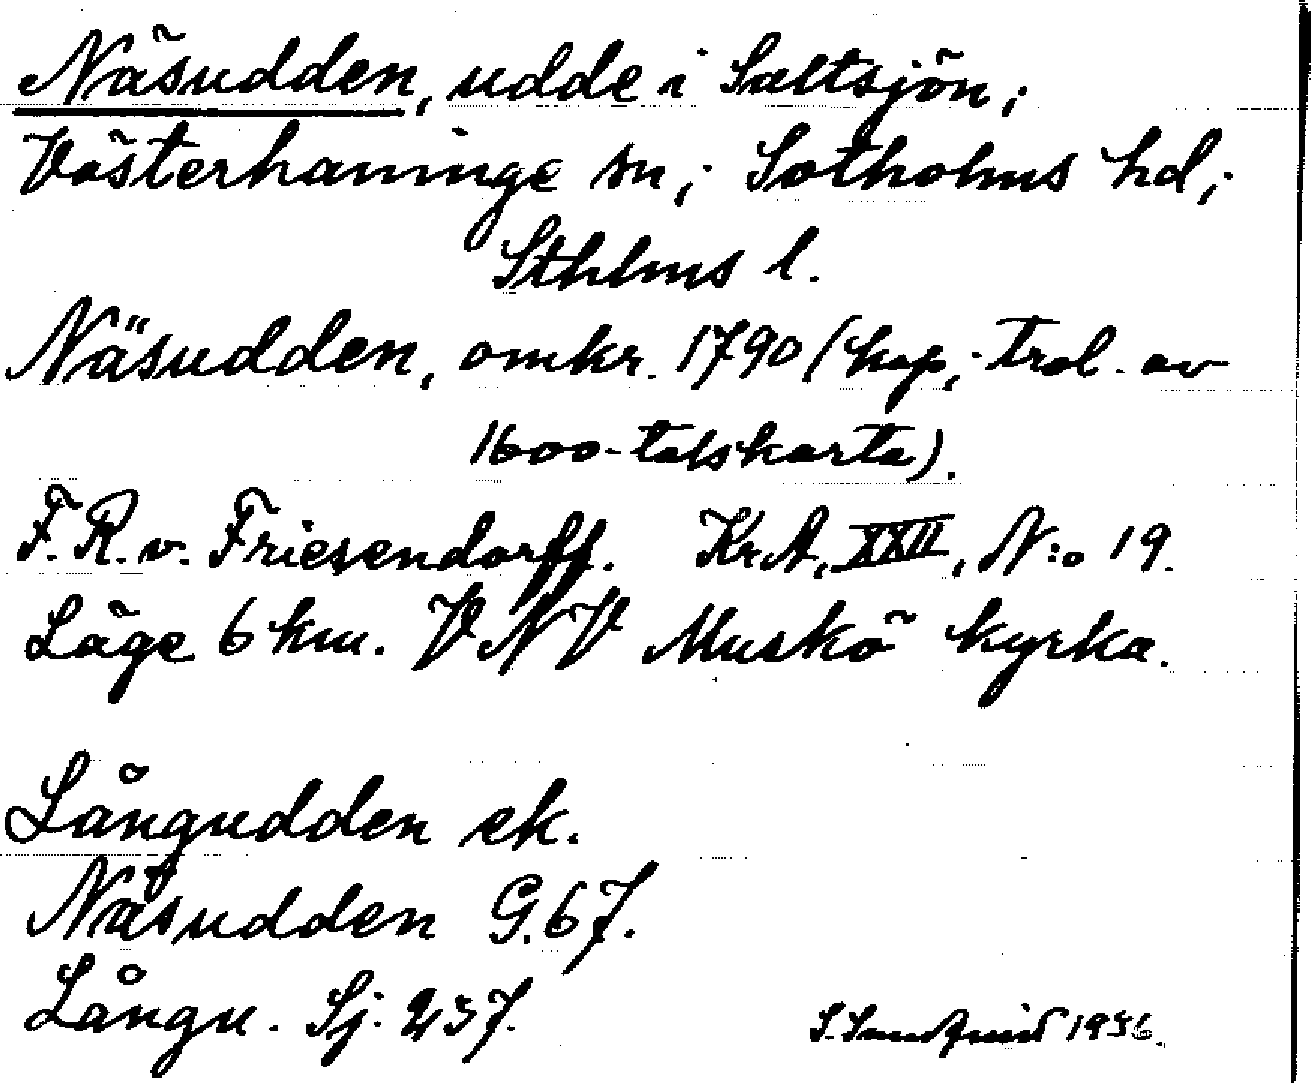 Näsudden, udde i Saltsjön;
Västerhaninge sn; Sotholms hd;
Sthlms l.
Näsudden, omkr. 1790 (kop; trol. av
1600-talskarta).
F. R. v. Friesendorff. Kr.A, XXII, N:o 19.
Läge 6 km. VNV Muskö kyrka.
Långudden ek.
Näsudden G. 67.
Långu. Sj. 237.
S. 1936.